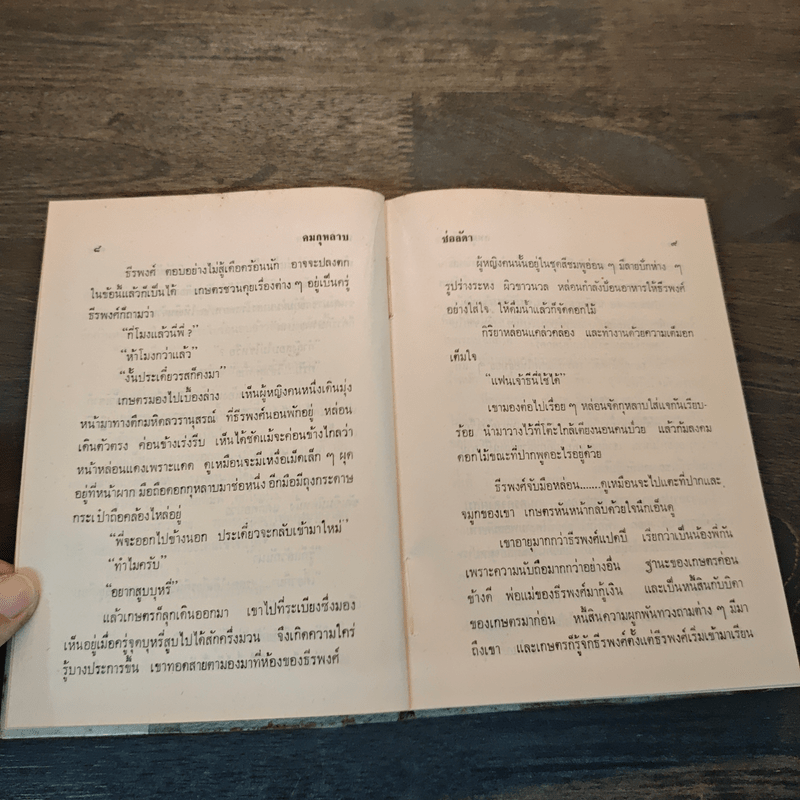 ๔ คมกุหลาบ
ธีรพงศ์ ตอบอย่างไม่สู้เดือดร้อนนัก อาจจะปลงตก
ในข้อนี้แล้วก็เป็นได้ เกษตรชวนคุยเรื่องต่าง ๆ อยู่เป็นครู่
ธีรพงศ์ก็ถามว่า
“กี่โมงแล้วนี่พี่ ?”
“ห้าโมงกว่าแล้ว”
“งั้นประเดี๋ยวรสก็คงมา”
เกษตรมองไปเบื้องล่าง เห็นผู้หญิงคนหนึ่งเดินมุ่ง
หน้ามาทางตึกมหิดลวรานุสรณ์ ที่ธีรพงศ์นอนพักอยู่ หล่อน
เดินตัวตรง ค่อนข้างเร่งรีบ เห็นได้ชัดแม้จะค่อนข้างไกลว่า
หน้าหล่อนแดงเพราะแดด ดูเหมือนจะมีเหงื่อเม็ดเล็ก ๆ ผุด
อยู่ที่หน้าผาก มือถือดอกกุหลาบมาช่อหนึ่ง อีกมือมีถุงกระดาษ
กระเป๋าถือคล้องไหล่อยู่
“พี่จะออกไปข้างนอก ประเดี๋ยวจะกลับเข้ามาใหม่”
“ทำไมครับ”
“อยากสูบบุหรี่”
แล้วเกษตรก็ลุกเดินออกมา เขาไปที่ระเบียงซึ่งมอง
เห็นอยู่เมื่อครู่จุดบุหรี่สูบไปได้สักครึ่งมวน จึงเกิดความใคร่
รู้บางประการขึ้น เขาทอดสายตามองมาที่ห้องของธีรพงศ์
ช่อลัดา ๙
ผู้หญิงคนนั้นอยู่ในชุดสีชมพูอ่อน ๆ มีลายบึกห่าง ๆ
รูปร่างระหง ผิวขาวนวล หล่อนกำลังป้อนอาหารให้ธีรพงศ์
อย่างใส่ใจ ให้ดื่มน้ำแล้วก็จัดดอกไม้
กิริยาหล่อนแคล่วคล่อง และทำงานด้วยความเต็มอก
เต็มใจ
“แฟนเจ้าธีนี่ใช้ได้”
เขามองต่อไปเรื่อย ๆ หล่อนจัดกุหลาบใส่แจกันเรียบ-
ร้อย นำมาวางไว้ที่โต๊ะใกล้เตียงนอนคนป่วย แล้วก้มลงดม
ดอกไม้ขณะที่ปากพูดอะไรอยู่ด้วย
ธีรพงศ์จับมือหล่อน.......ดูเหมือนจะไปแตะที่ปากและ
จมูกของเขา เกษตรหันหน้ากลับด้วยใจนึกเอ็นดู
เขาอายุมากกว่าธีรพงศ์แปดปี เรียกว่าเป็นน้องพี่กัน
เพราะความนับถือมากกว่าอย่างอื่น ฐานะของเกษตรค่อน
ข้างดี พ่อแม่ของธีรพงศ์มากู้เงิน และเป็นหนี้สินกับบิดา
ของเกษตรมาก่อน หนี้สินความผูกพันทวงถามต่าง ๆ มีมา
ถึงเขา และเกษตรก็รู้จักธีรพงศ์ตั้งแต่ธีรพงศ์เริ่มเข้ามาเรียน